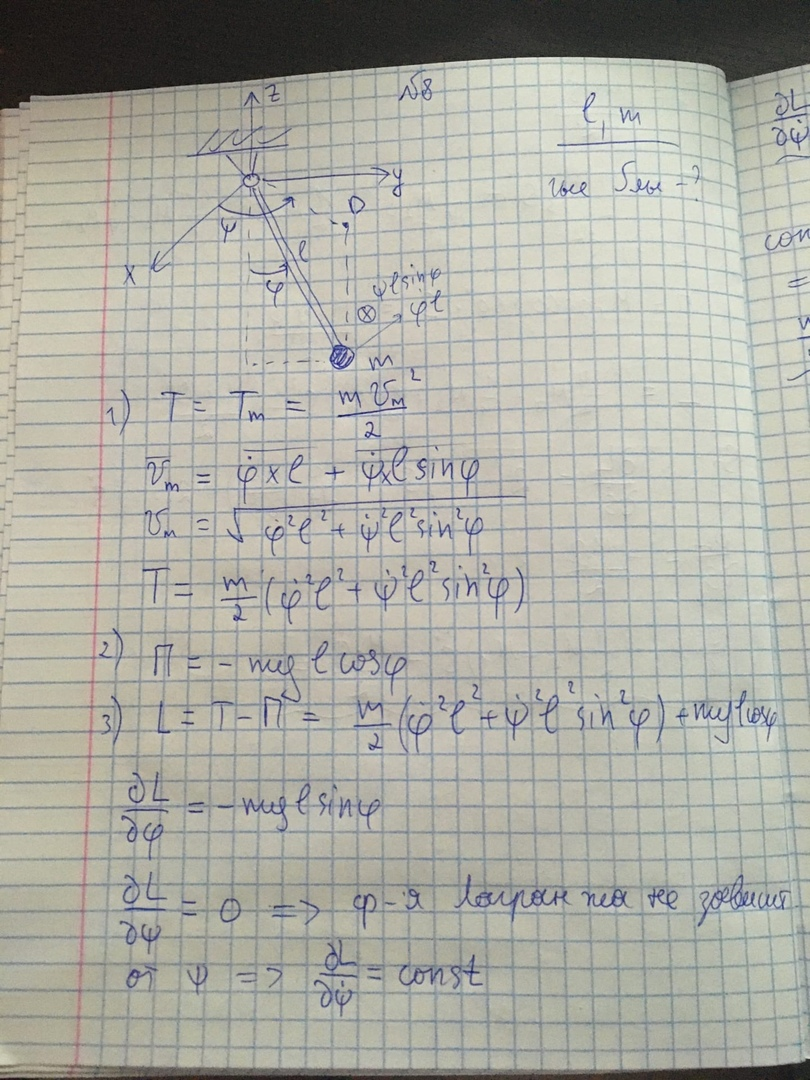 №8
z
l, m
y
D
ψ
l
x
φ
ψ̇ l sinφ
φ̇ l
m
1) T = T_m = m v_m² / 2
v̄_m = φ̇ × l + ψ̇ × l sinφ
v_m = √(φ̇² l² + ψ̇² l² sin²φ)
T = m/2 (φ̇² l² + ψ̇² l² sin²φ)
2) П = - mg l cosφ
3) L = T - П = m/2 (φ̇² l² + ψ̇² l² sin²φ) + mg l cosφ
∂L/∂φ = - mg l sinφ
∂L/∂ψ = 0 => ф-я Лагранжа не зависит
от ψ => ∂L/∂ψ̇ = const
∂L/∂ψ̇
con
=